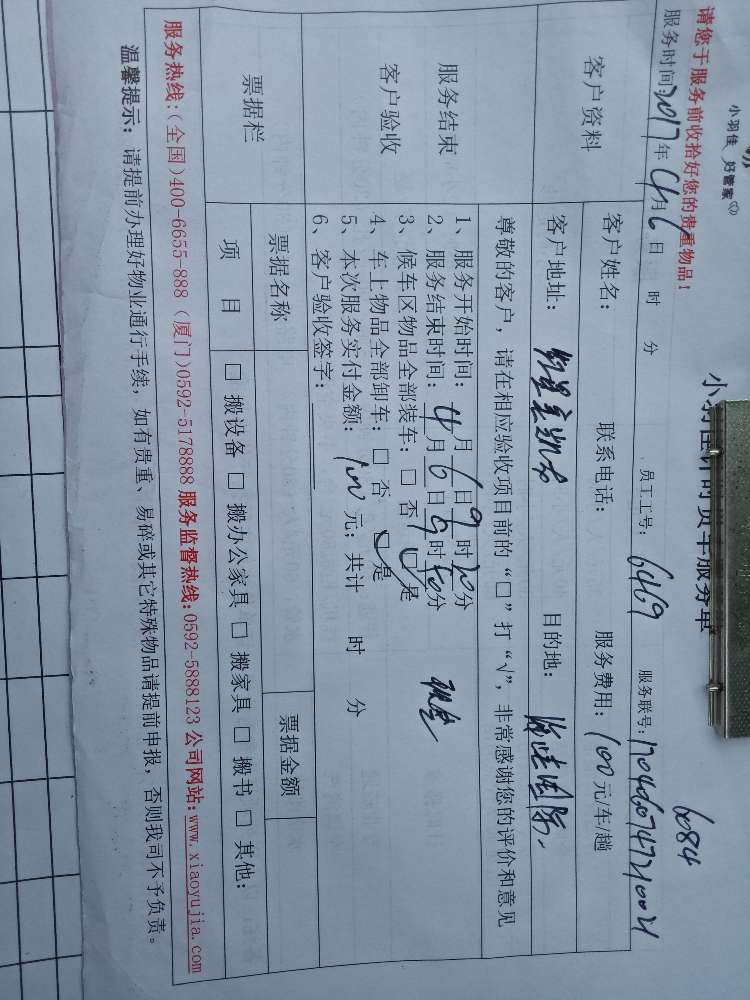 小羽佳 好管家
小羽佳计时货车服务单
6084
请您于服务前收拾好您的贵重物品！
服务时间:2017年4月6日 时 分 员工工号: 6469 服务联号:
客户资料
客户姓名: 联系电话: 服务费用: 100元/车/趟
客户地址: 目的地:
服务结束
客户验收
尊敬的客户，请在相应验收项目前的“□”打“√”，非常感谢您的评价和意见
1、服务开始时间: 月6日9时20分
2、服务结束时间: 4月6日9时40分 现金
3、候车区物品全部装车: □ 否 □ 是
4、车上物品全部卸车: □ 否 □ 是
5、本次服务实付金额: 100 元; 共计 时 分
6、客户验收签字:
票据栏
票据名称 票据金额
项 目 □ 搬设备 □ 搬办公家具 □ 搬家具 □ 搬书 □ 其他:
服务热线:(全国)400-6655-888 (厦门)0592-5178888 服务监督热线:0592-5888123 公司网站:www.xiaoyujia.com
温馨提示: 请提前办理好物业通行手续，如有贵重、易碎或其它特殊物品请提前申报，否则我司不予负责。